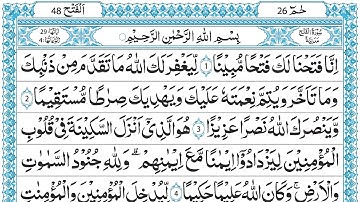 حٰمٓ 26
اَلْفَتْح 48
بِسْمِ اللّٰهِ الرَّحْمٰنِ الرَّحِيْمِ
اِنَّا فَتَحْنَا لَكَ فَتْحًا مُّبِيْنًا ۙ 1 لِّيَغْفِرَ لَكَ اللّٰهُ مَا تَقَدَّمَ مِنْ ذَنْۢبِكَ
وَمَا تَاَخَّرَ وَيُتِمَّ نِعْمَتَهٗ عَلَيْكَ وَيَهْدِيَكَ صِرَاطًا مُّسْتَقِيْمًا ۙ 2
وَّيَنْصُرَكَ اللّٰهُ نَصْرًا عَزِيْزًا 3 هُوَ الَّذِيْٓ اَنْزَلَ السَّكِيْنَةَ فِيْ قُلُوْبِ
الْمُؤْمِنِيْنَ لِيَزْدَادُوْٓا اِيْمَانًا مَّعَ اِيْمَانِهِمْ ۗ وَلِلّٰهِ جُنُوْدُ السَّمٰوٰتِ
وَالْاَرْضِ ۗ وَكَانَ اللّٰهُ عَلِيْمًا حَكِيْمًا ۙ 4 لِّيُدْخِلَ الْمُؤْمِنِيْنَ وَالْمُؤْمِنٰتِ